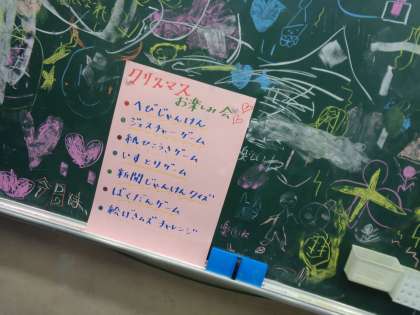 クリスマス
お楽しみ会
• へびじゃんけん
• ジェスチャーゲーム
• 紙ひこうきゲーム
• いすとりゲーム
• 新聞じゃんけんクイズ
• ばくだんゲーム
• 絵はさムズチャレンジ
今日は